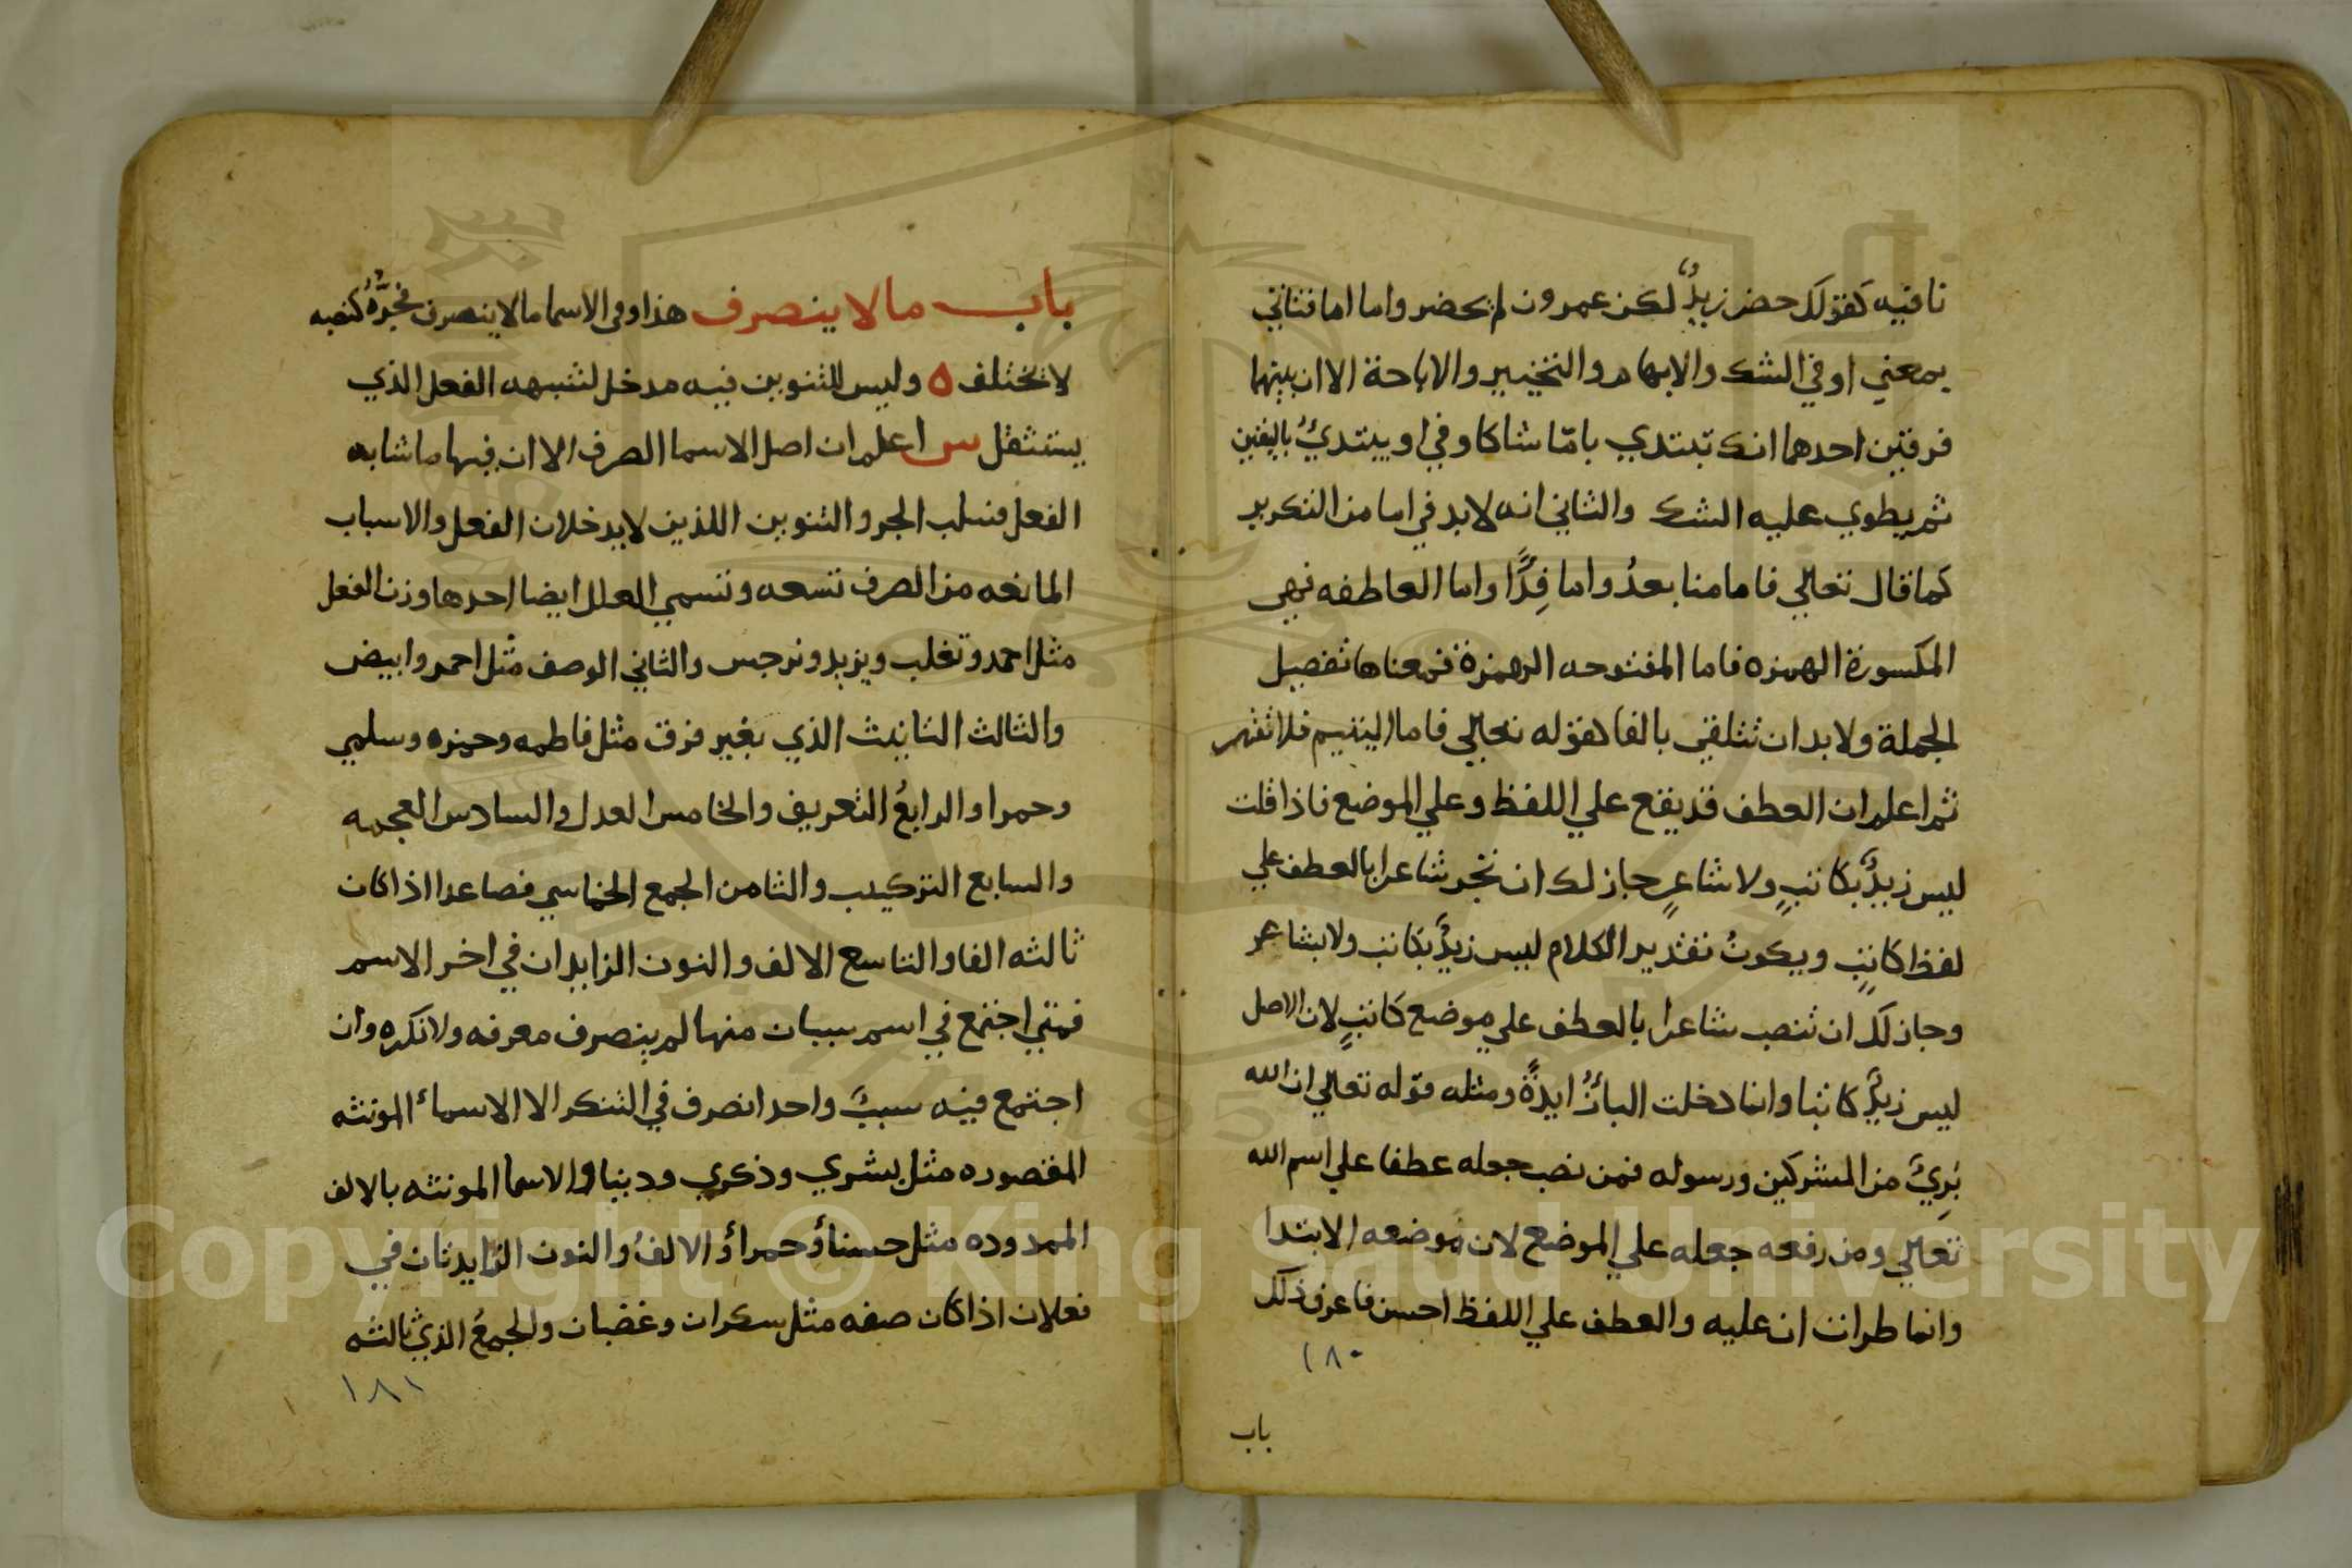 نافيه كقولك حضر زيدٌ لكن عمرون لم يحضر واما اما فتاتي
بمعني او في الشك والابهام والتخيير والاباحة الا ان بينهما
فرقين احدهما انك تبتدي بامّا شاكا وفي او يبتدئُ باليقين
ثم يطوي عليه الشك والثاني انه لابد في اما من التكرير
كما قال تعالي فاما منا بعدُ واما فِدًا واما العاطفه فهي
المكسورة الهمزه فاما المفتوحه الهمزة فمعناها تفصيل
الجملة ولابد ان تتلقي بالفا كقوله تعالي فاما اليتيم فلا تقهر
ثم اعلم ان العطف قد يقع علي اللفظ وعلي الموضع فاذا قلت
ليس زيدٌ بكاتبٍ ولا شاعرٍ جاز لك ان تجر شاعرا بالعطف علي
لفظ كاتبٍ ويكونُ تقدير الكلام ليس زيدٌ بكاتب ولا بشاعر
وجاز لك ان تنصب شاعرا بالعطف علي موضع كاتبٍ لان الاصل
ليس زيدٌ كاتبا وانما دخلت البأ زايدةً ومثله قوله تعالي ان الله
بَرِيٌ من المشركين ورسوله فمن نصب جعله عطفا علي اسم الله
تعالي ومن رفعه جعله علي الموضع لان موضعه الابتدا
وانما طرات ان عليه والعطف علي اللفظ احسن فاعرف ذلك
١٨٠
باب
باب ما لا ينصرف هذا وفي الاسما ما لا ينصرف فجرُّهُ كنصبه
لا يختلف ٥ وليس للتنوين فيه مدخل لشبهه الفعل الذي
يستثقل س اعلم ان اصل الاسما الصرف الا ان فيها ما شابه
الفعل فسلب الجر والتنوين اللذين لا يدخلان الفعل والاسباب
المانعه من الصرف تسعه وتسمي العلل ايضا احدها وزن الفعل
مثل احمد وتغلب ويزيد ونرجس والثاني الوصف مثل احمر وابيض
والثالث التانيث الذي بغير فرق مثل فاطمه وحمزه وسلمي
وحمرا والرابعُ التعريف والخامس العدل والسادس العجمه
والسابع التركيب والثامن الجمع الخماسي فصاعدا اذا كان
ثالثه الفا والتاسع الالف والنون الزايدان في اخر الاسم
فمتي اجتمع في اسم سببان منها لم ينصرف معرفه ولا نكره وان
اجتمع فيه سببٌ واحد انصرف في التنكر الا الاسمأ المونثه
المقصوره مثل بشري وذكري ودنيا والاسما المونثه بالالف
الممدوده مثل حسنأ وحمرأ والالفُ والنون الزايدتان في
فعلان اذا كان صفه مثل سكران وغضبان والجمعُ الذي ثالثه
١٨١
Copyright © King Saud University